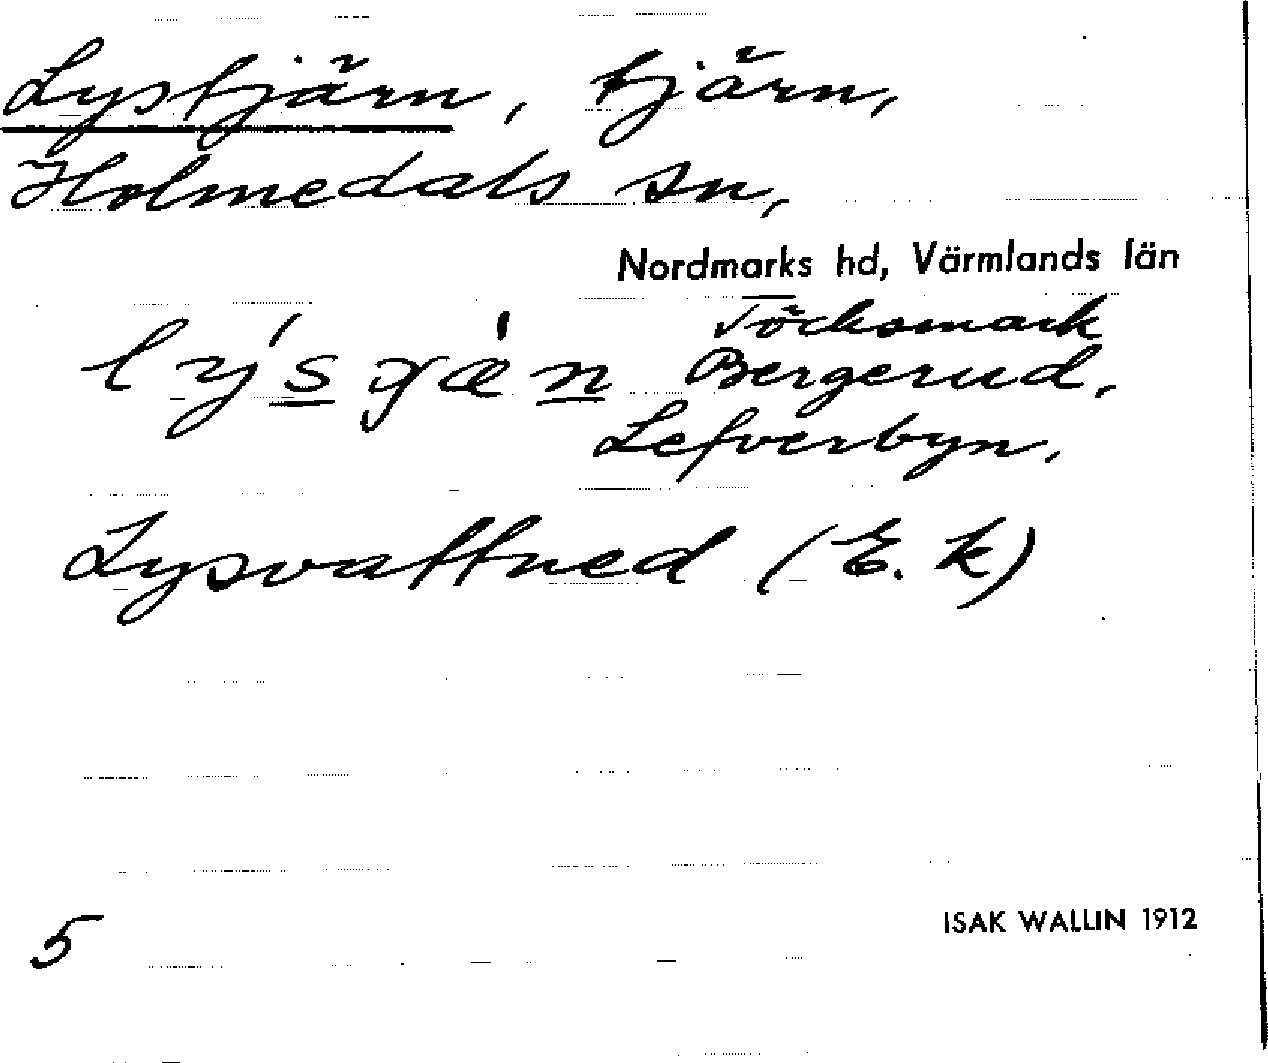 Lystjärn, tjärn,
Holmedals sn,
Nordmarks hd, Värmlands län
Töcksmark
lýsɤæ̀n Bergerud,
Lefverbyn,
Lysvattned (E. k)
5
ISAK WALLIN 1912